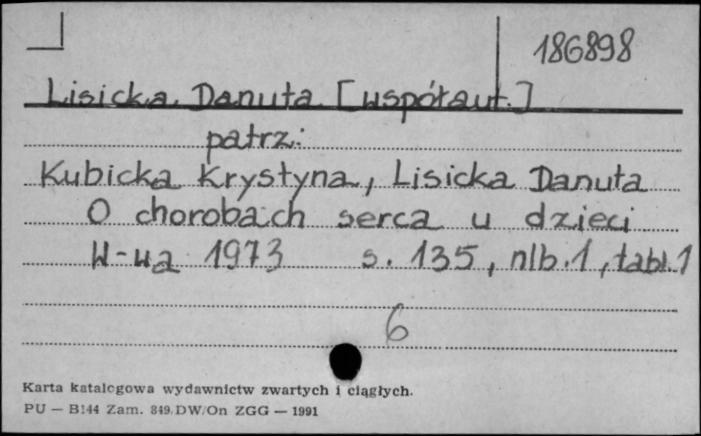 186898
Lisicka Danuta [współaut.]
patrz:
Kubicka Krystyna, Lisicka Danuta
O chorobach serca u dzieci
W-wa 1973 s. 135, nlb. 1, tabl. 1
6
Karta katalogowa wydawnictw zwartych i ciągłych.
PU — B144 Zam. 849. DW/On ZGG — 1991